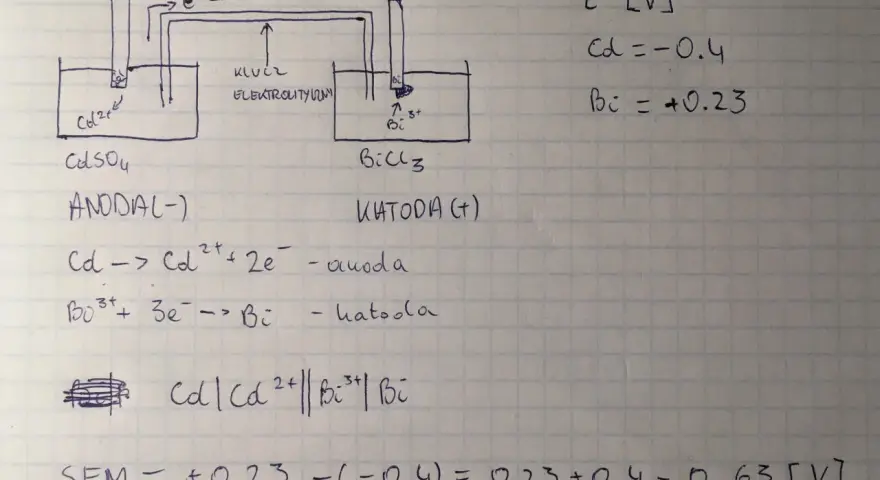 e
[V]
KLUCZ
ELEKTROLITYCZNY
Cd = -0.4
Bi = +0.23
Cd²⁺
Bi
Bi³⁺
CdSO₄
BiCl₃
ANODA(-)
KATODA(+)
Cd -> Cd²⁺ + 2e⁻ - anoda
Bi³⁺ + 3e⁻ -> Bi - katoda
Cd|Cd²⁺||Bi³⁺|Bi
SEM = +0.23 - (-0.4) = 0.23 + 0.4 = 0.63 [V]